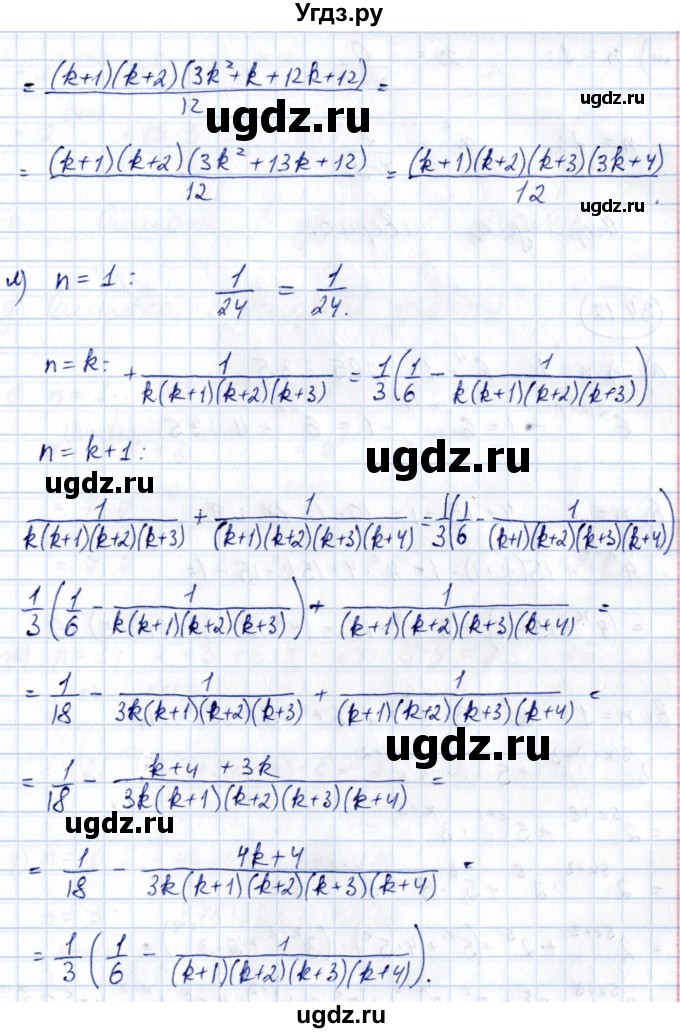 Угдз.ру
= \frac{(k+1)(k+2)(3k²+k+12k+12)}{12} =
ugdz.ru
ugdz.ru
= \frac{(k+1)(k+2)(3k²+13k+12)}{12} = \frac{(k+1)(k+2)(k+3)(3k+4)}{12}.
ugdz.ru
м) n = 1 : \frac{1}{24} = \frac{1}{24}.
n = k: + \frac{1}{k(k+1)(k+2)(k+3)} = \frac{1}{3}(\frac{1}{6} - \frac{1}{k(k+1)(k+2)(k+3)})
n = k+1:
ugdz.ru
ugdz.ru
\frac{1}{k(k+1)(k+2)(k+3)} + \frac{1}{(k+1)(k+2)(k+3)(k+4)} = \frac{1}{3}(\frac{1}{6} - \frac{1}{(k+1)(k+2)(k+3)(k+4)})
\frac{1}{3}(\frac{1}{6} - \frac{1}{k(k+1)(k+2)(k+3)}) + \frac{1}{(k+1)(k+2)(k+3)(k+4)} =
= \frac{1}{18} - \frac{1}{3k(k+1)(k+2)(k+3)} + \frac{1}{(k+1)(k+2)(k+3)(k+4)} =
ugdz.ru
= \frac{1}{18} - \frac{k+4 +3k}{3k(k+1)(k+2)(k+3)(k+4)} =
ugdz.ru
= \frac{1}{18} - \frac{4k+4}{3k(k+1)(k+2)(k+3)(k+4)} =
= \frac{1}{3}(\frac{1}{6} - \frac{1}{(k+1)(k+2)(k+3)(k+4)}).
ugdz.ru